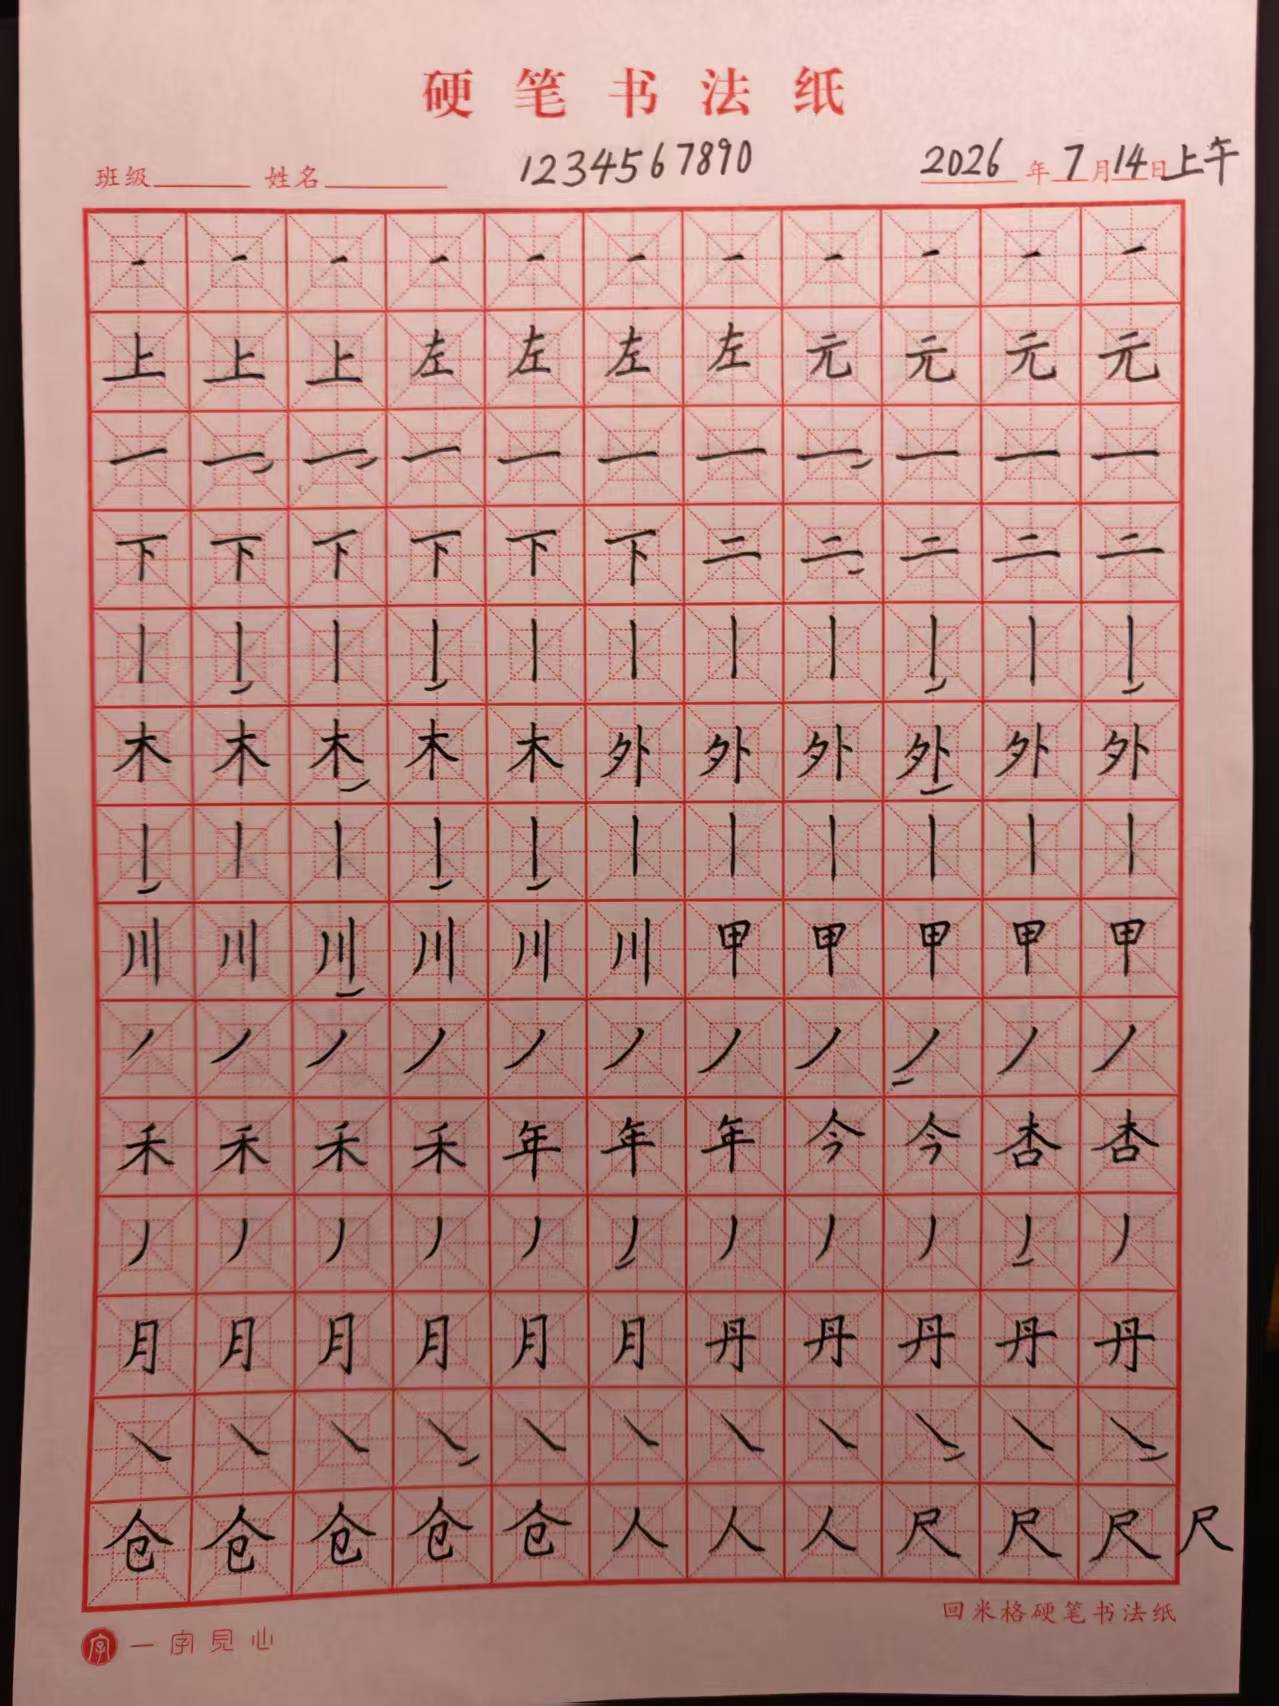 硬笔书法纸
班级 姓名 1234567890 2026年7月14日上午
一一一一一一一一一一一
上上上左左左左元元元元
一一一一一一一一一一一
下下下下下下二二二二二
丨丨丨丨丨丨丨丨丨丨丨
木木木木木外外外外外外
丨丨丨丨丨丨丨丨丨丨丨
川川川川川川甲甲甲甲甲
丿丿丿丿丿丿丿丿丿丿丿
禾禾禾禾年年年今今杏杏
丿丿丿丿丿丿丿丿丿丿丿
月月月月月月丹丹丹丹丹
㇏㇏㇏㇏㇏㇏㇏㇏㇏㇏㇏
仓仓仓仓仓人人人尺尺尺尺
回米格硬笔书法纸
字 一字见心